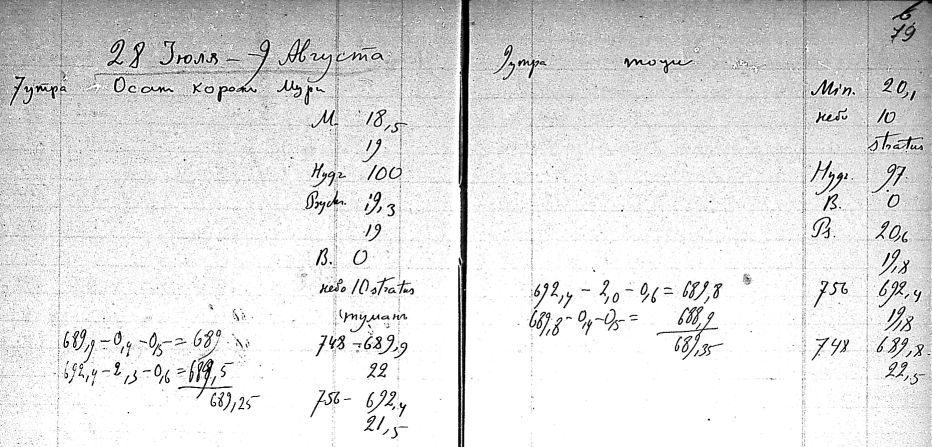 28 Июля – 9 Августа
7 утра
М. 18,5
19
Hygr 100
Psychr. 19,3
19
В. 0
небо 10 stratus
туманъ
689,9 – 0,4 – 0,5 – = 689
748 – 689,9
692,4 – 2,3 – 0,6 = 689,5
22
689,25
756 – 692,4
21,5
6
79
9 утра
Min. 20,1
небо 10
stratus
Hygr. 97
В. 0
Ps. 20,6
19,8
692,4 – 2,0 – 0,6 = 689,8
756 692,4
689,8 – 0,4 – 0,5 = 688,9
19,8
689,35
748 689,8
22,5